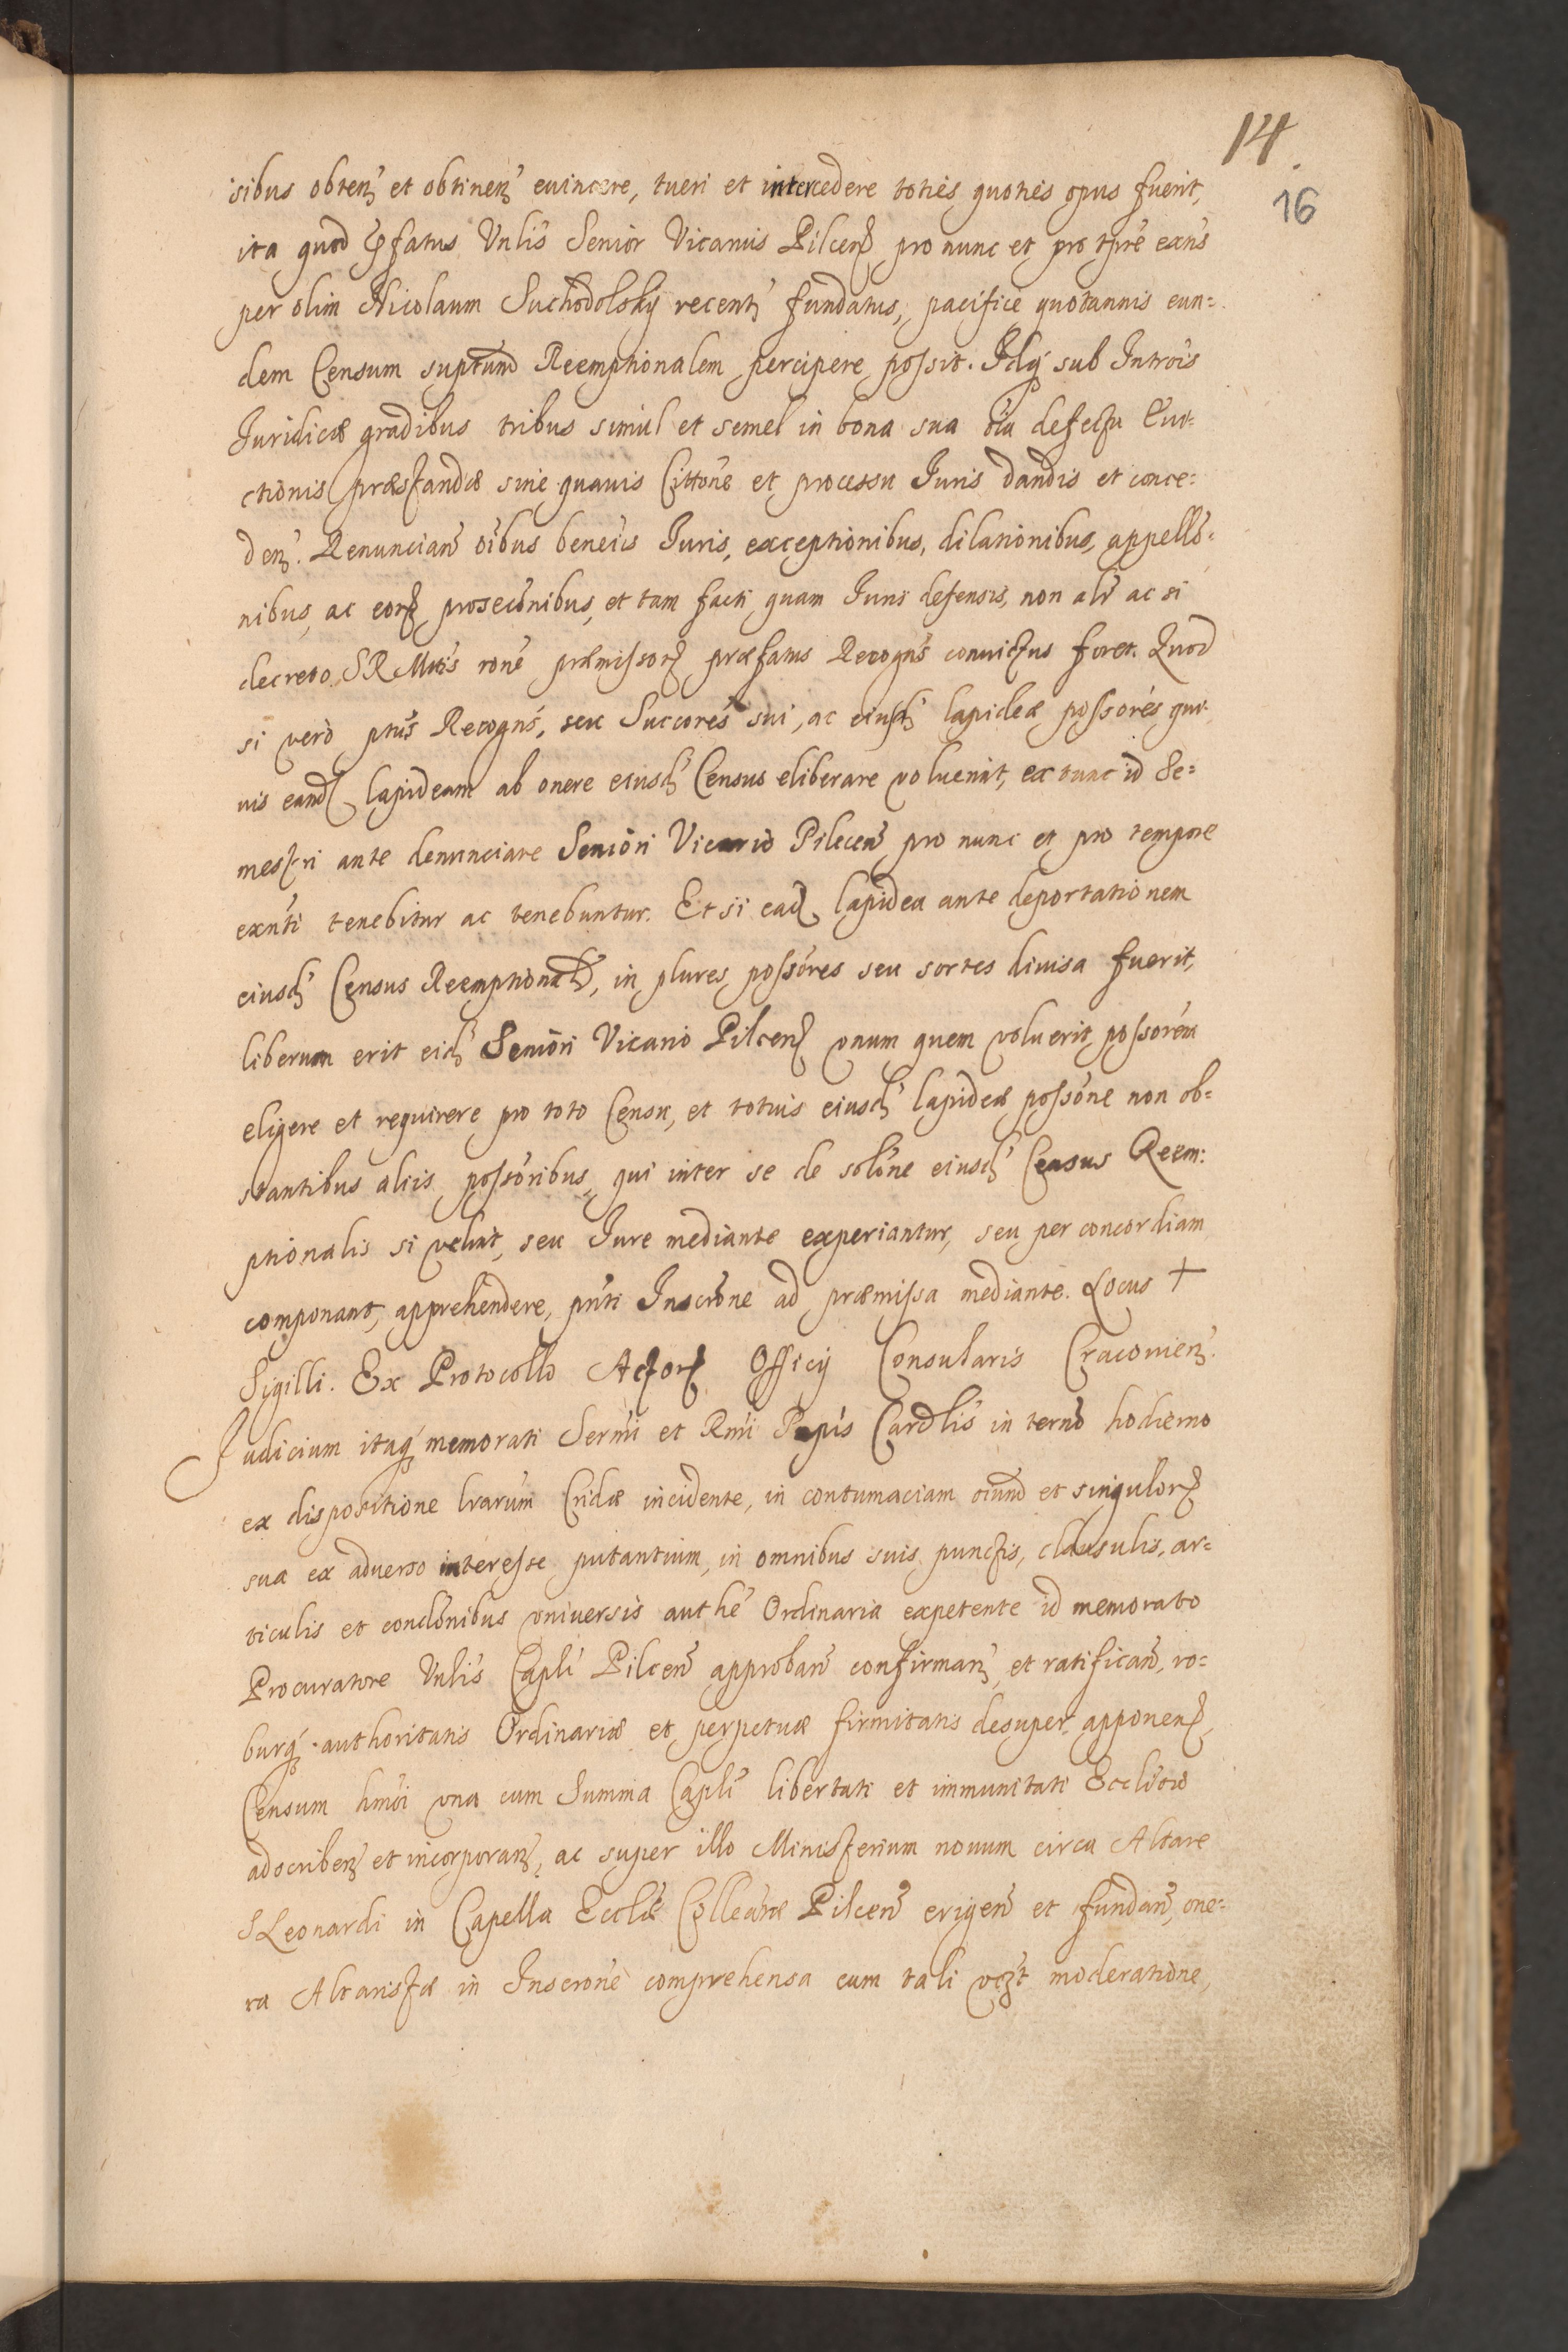 14.
16
isibus obtenꝫ et obtinenꝫ euincere, tueri et intercedere toties quoties opus fuerit,
ita quod pfatus Vnlis Senior Vicarius Pilcenꝫ pro nunc et pro tpre exns
per olim Nicolaum Suchodolsky recentꝫ fundatus, pacifice quotannis eun=
dem Censum suptum Reemptionalem percipere possit. Idqꝫ sub Introis
Iuridicæ gradibus tribus simul et semel in bona sua oia defectu Eui-
ctionis præstandæ sine quauis Cittone et processu Iuris dandis et conce=
denꝫ. Renuncianꝫ oibus beneiis Iuris, exceptionibus, dilationibus, appello=
nibus, ac eorꝫ prosecōnibus, et tam facti quam Iuris defensis, non alr ac si
decreto SRMttis rone præmissorꝫ præfatus Recogns conuictus foret. Quod
si vero ptus Recogns, seu Succores sui, ac eiusdꝫ lapideæ possores qui-
uis eandꝫ lapideam ab onere eiusdꝫ Census eliberare voluerit, ex tunc id Se=
mestri ante denunciare Seniori Vicario Pilecenꝫ pro nunc et pro tempore
exnti tenebitur ac tenebuntur. Et si eadꝫ lapidea ante deportationem
eiusdꝫ Census Reemptionalꝫ, in plures possores seu sortes diuisa fuerit,
liberum erit eidꝫ Seniori Vicario Pilcenꝫ vnum quem voluerit possorem
eligere et requirere pro toto Censu, et totius eiusdꝫ lapideæ possone non ob=
stantibus aliis possoribus, qui inter se de solone eiusdꝫ Census Reem:
ptionalis si velint, seu Iure mediante experiantur, seu per concordiam
componant, apprehendere, pnti Inscrone ad præmissa mediante. Locus +
Sigilli. Ex Protocollo Actorꝫ Officij Consularis Cracouienꝫ.
Iudicium itaqꝫ memorati Sermi et Rmi Pnpis Cardlis in termo hodierno
ex dispositione lrarum Cridæ incidente, in contumaciam oium et singulorꝫ
sua ex aduerso interesse putantium, in omnibus suis punctis, clausulis, ar=
ticulis et conclonibus vniuersis authe Ordinaria expetente id memorato
Procuratore Vnlis Capli Pilcenꝫ approbanꝫ confirmanꝫ et ratificanꝫ, ro=
burqꝫ authoritatis Ordinariæ et perpetuæ firmitatis desuper apponenꝫ,
Censum hmoi vna cum Summa Capli libertati et immunitati Eccliticæ
adscribenꝫ et incorporanꝫ, ac super illo Ministerium nouum circa Altare
S Leonardi in Capella Eccliæ Colleatæ Pilcenꝫ erigenꝫ et fundanꝫ, one-
ra Altaristæ in Inscrone comprehensa cum tali vꝫt moderatione,